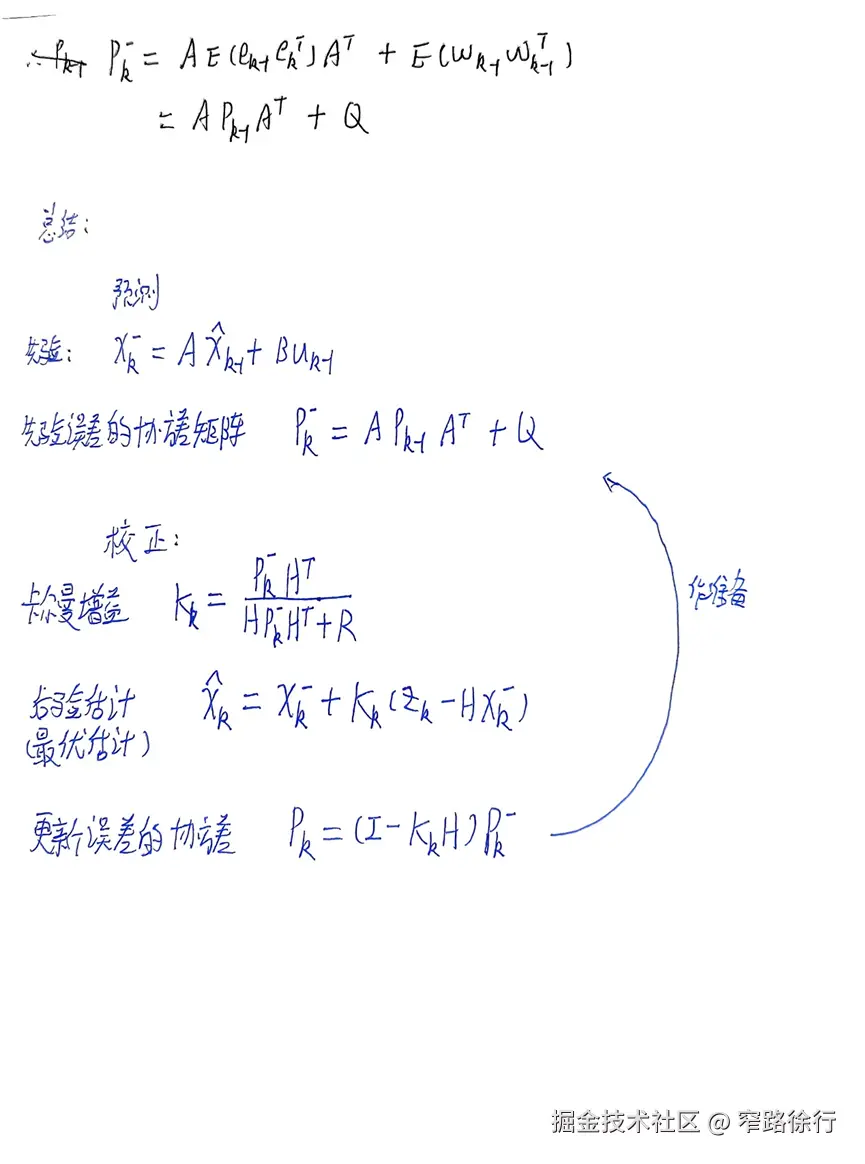 ∴ P_k^- = A E(e_{k-1} e_k^T) A^T + E(w_{k-1} w_{k-1}^T)
= A P_{k-1} A^T + Q
总结:
预测
先验: X_k^- = A X̂_{k-1} + B u_{k-1}
先验误差的协方差矩阵 P_k^- = A P_{k-1} A^T + Q
校正:
卡尔曼增益 K_k = \frac{P_k^- H^T}{H P_k^- H^T + R}
作准备
后验估计 X̂_k = X_k^- + K_k (Z_k - H X_k^-)
(最优估计)
更新误差的协方差 P_k = (I - K_k H) P_k^-
掘金技术社区 @ 窄路徐行